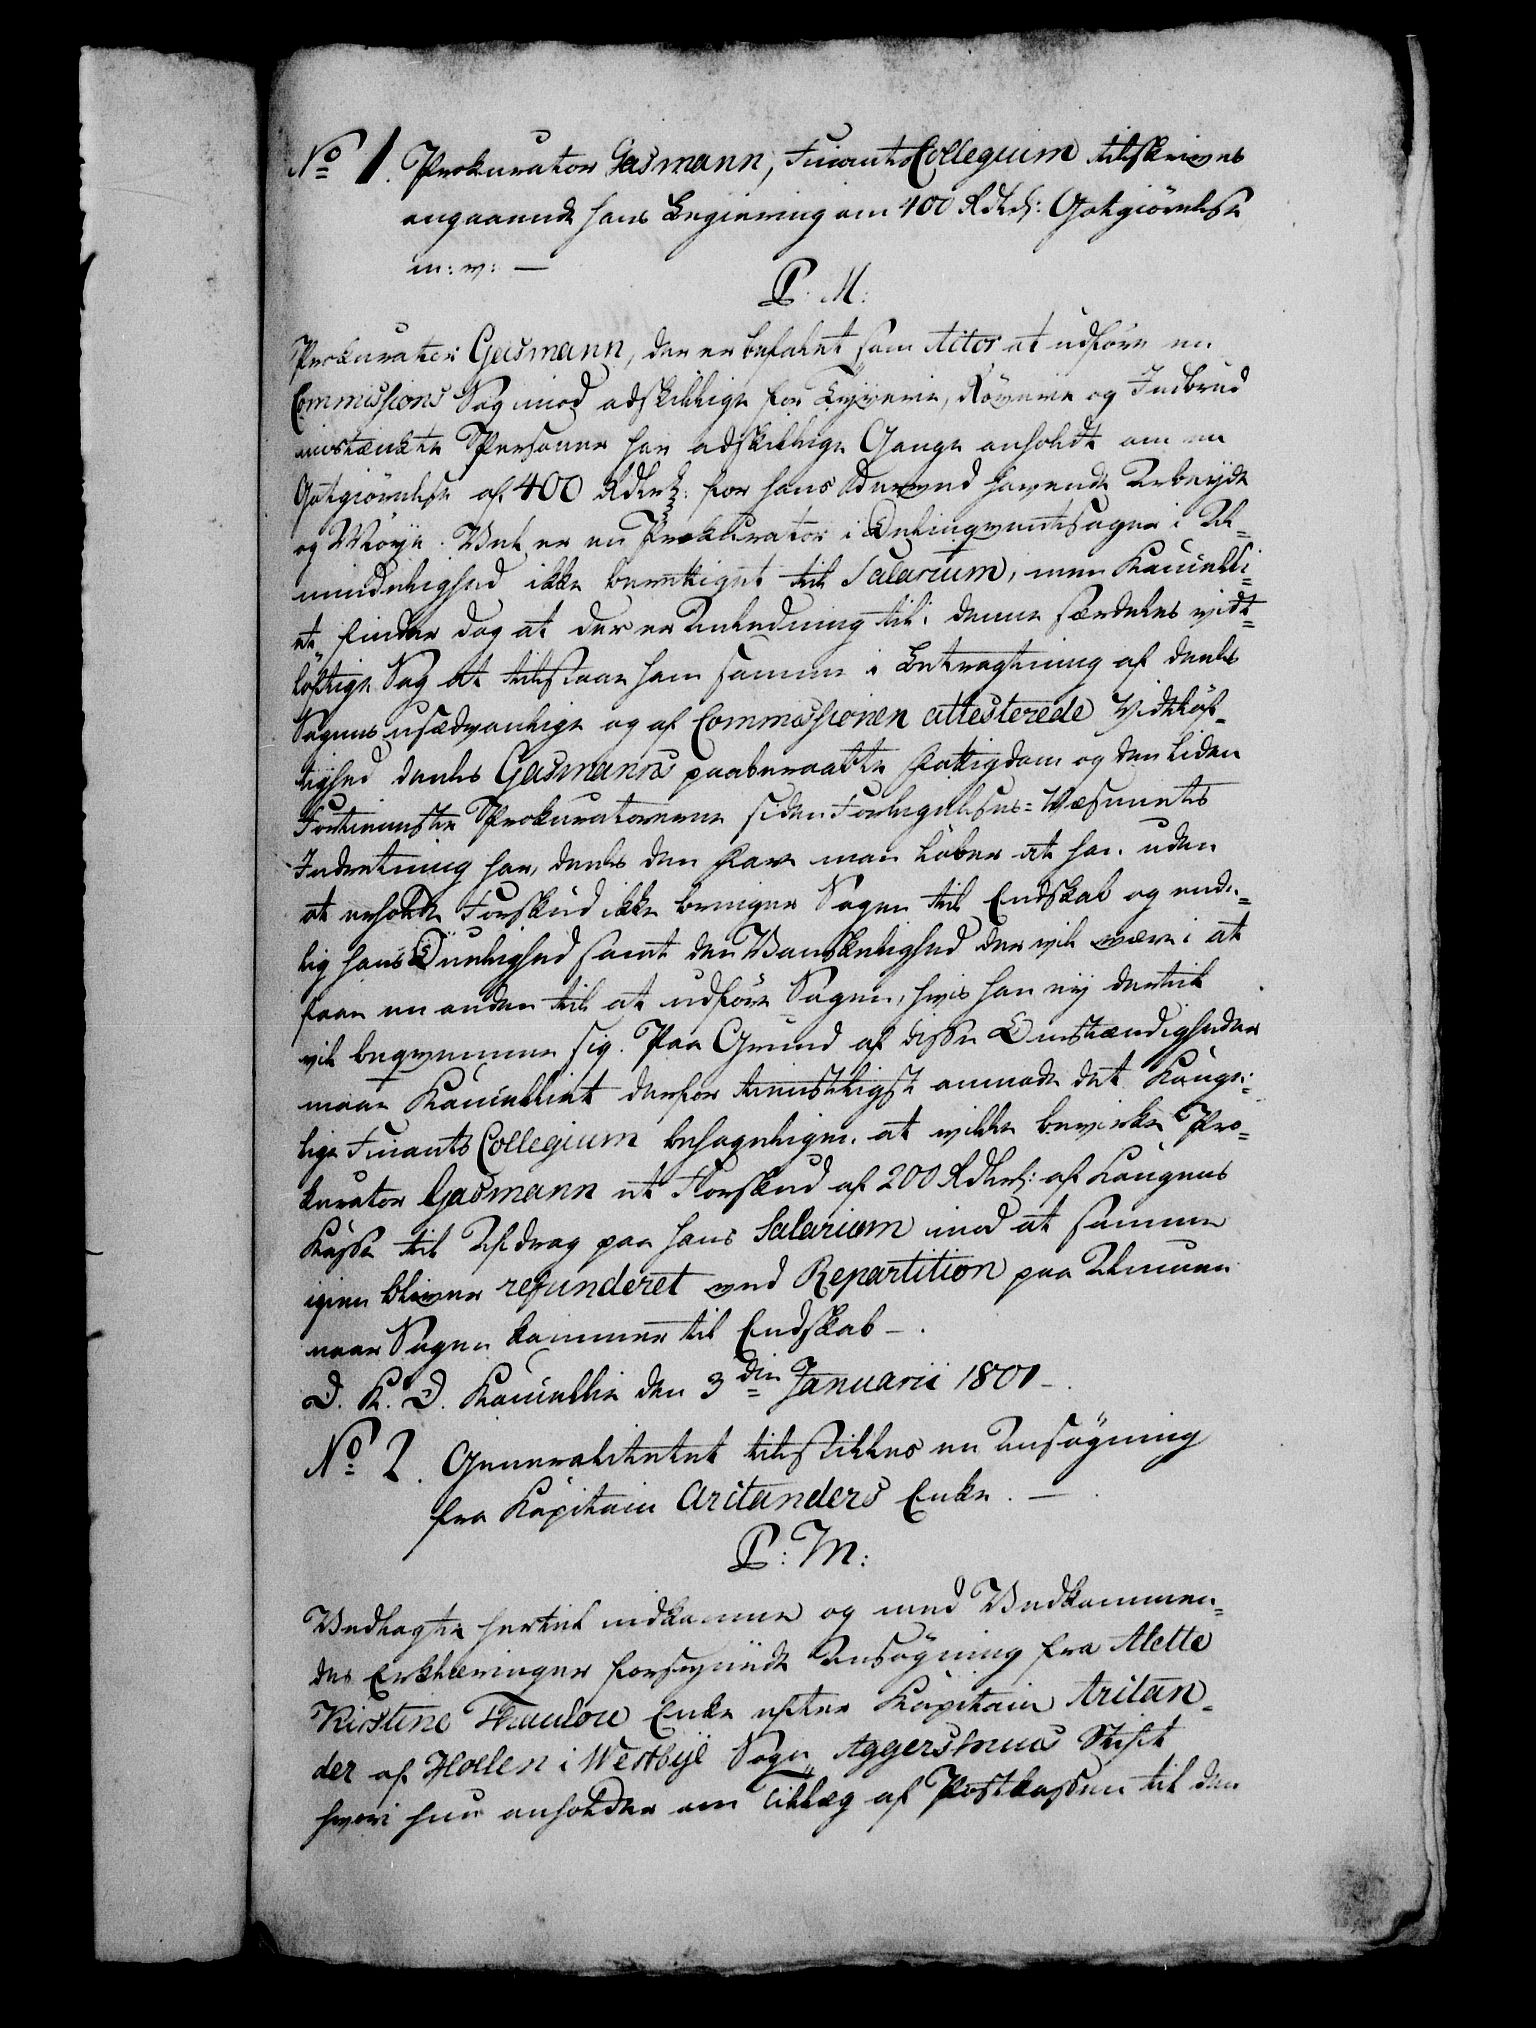 No 1. Prokurator Gasmann, Finants Collegium tilskrives
angaaende hans Begiering om 400 Rdlrs: Godtgiörelse
m: v: —
P. M:
Prokurator Gasmann, der er befalet som Actor at udföre en
Commissions Sag imod adskillige for Tyverie, Röverie og Indbrud
mistænkte Personer har adskillige Gange anholdt om en
Godtgiörelse af 400 Rdlr: for hans derved havende Arbeyde
og Möye. Vel er en Prokurator i Delinqventsager i Al=
mindelighed ikke berettiget til Salarium, men Kancelli=
et finder dog at der er Anledning til i denne særdeles vidt=
löftige Sag at tilstaae ham samme i Betragtning af deels
Sagens usædvanlige og af Commissionen attesterede Vidtlöf=
tighed deels Gasmanns paaberaabte Fattigdom og den liden
Fortieneste Prokuratorerne siden Forligelses=Væsenets
Indretning har, deels den Fare man löber at han uden
at erholde Forskud ikke bringer Sagen til Endskab og ende=
lig hans Duelighed samt den Vanskelighed der vil være i at
faae en anden til at udföre Sagen, hvis han ey dertil
vil beqvemme sig. Paa Grund af disse Omstændigheder
maae Kancelliet derfor tienstligst anmode det Konge=
lige Finants Collegium behageligen at ville bevirke Pro=
kurator Gasmann et Forskud af 200 Rdlrs: af Kongens
Kasse til Afdrag paa hans Salarium imod at samme
igien bliver refunderet ved Repartition paa Almuen
naar Sagen kommer til Endskab —.
D. K. D. Kancellie den 3die Januarii 1801 —.
No 2. Generalitetet tilstilles en Ansögning
fra Kapitain Aritanders Enke. —.
P: M:
Vedlagte hertil indkomne og med Vedkommen=
des Erklæringer forsynede Ansögning fra Alette
Kirstine Thaulou Enke efter Kapitain Aritan=
der af Hollen i Westbye Sogn Aggershuus Stift
hvori hun anholder om Tillæg af Postkassen til den